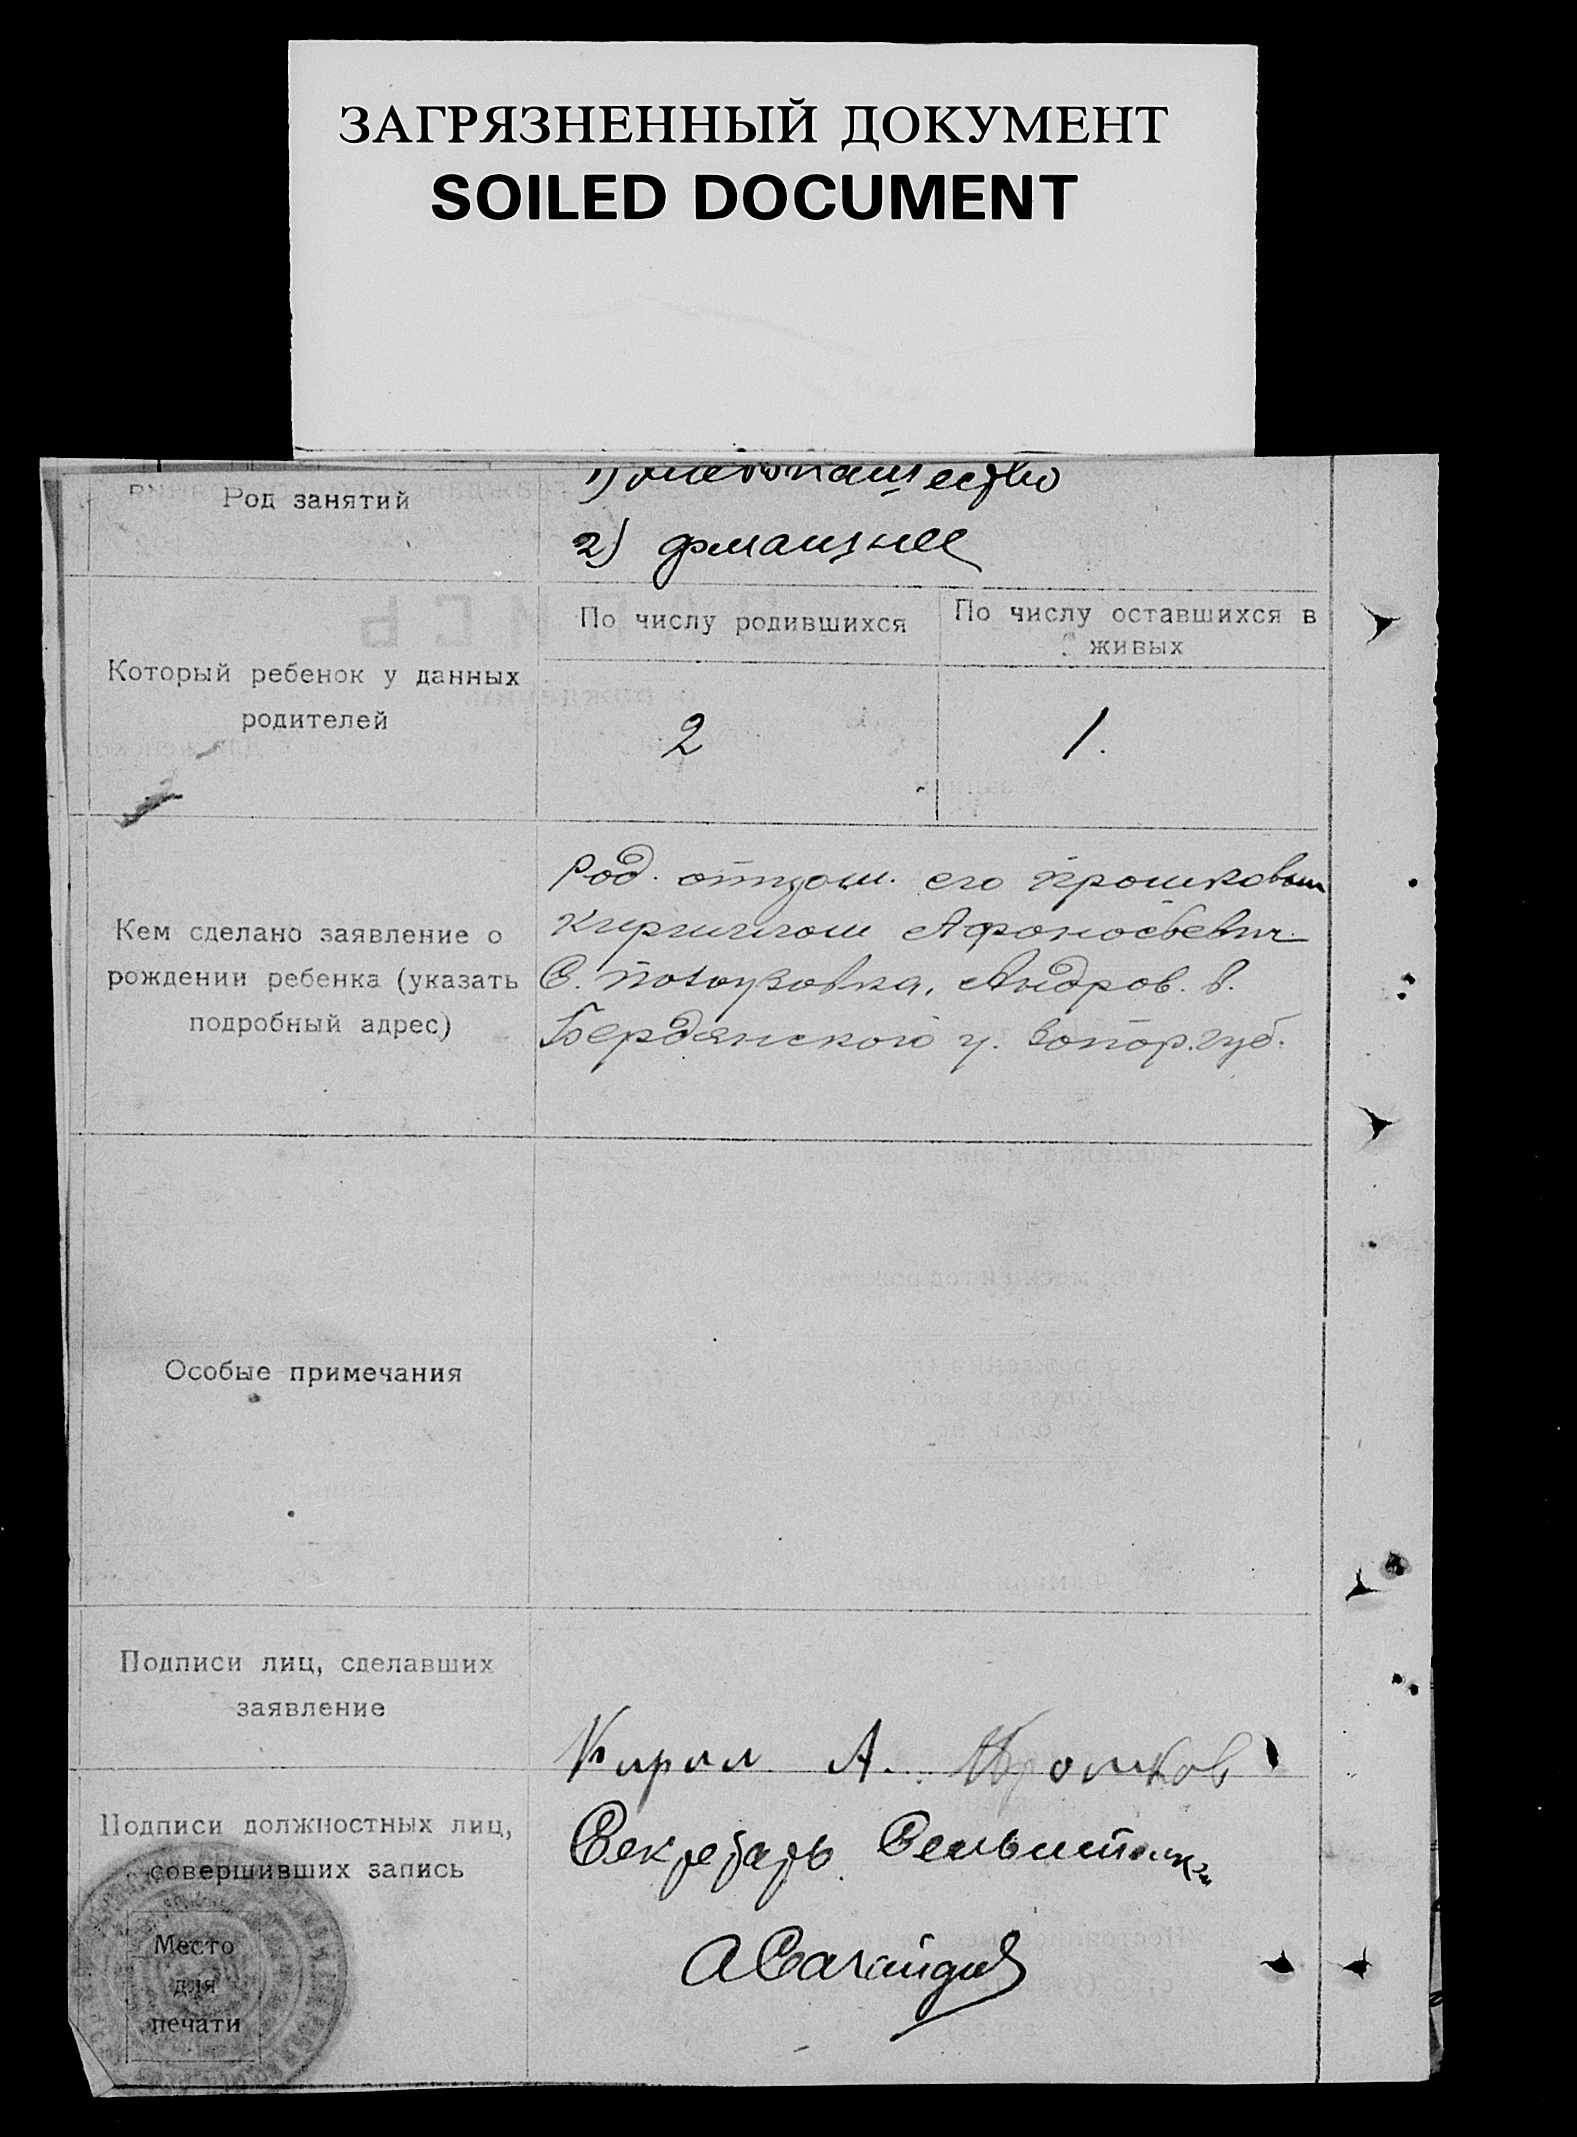 ЗАГРЯЗНЕННЫЙ ДОКУМЕНТ
SOILED DOCUMENT
Род занятий
1) хлебопашество
2) домашнее
Который ребенок у данных
родителей
По числу родившихся
По числу оставшихся в
живых
2
1.
Кем сделано заявление о
рождении ребенка (указать
подробный адрес)
Род. отцом. его Прошковым
Кириллом Афоносьевич.
С. Андров. в.
Бердянского у. Запор. губ.
Особые примечания
Подписи лиц, сделавших
заявление
Кирил А. Прошков
Подписи должностных лиц,
совершивших запись
Секретарь
Место
для
печати